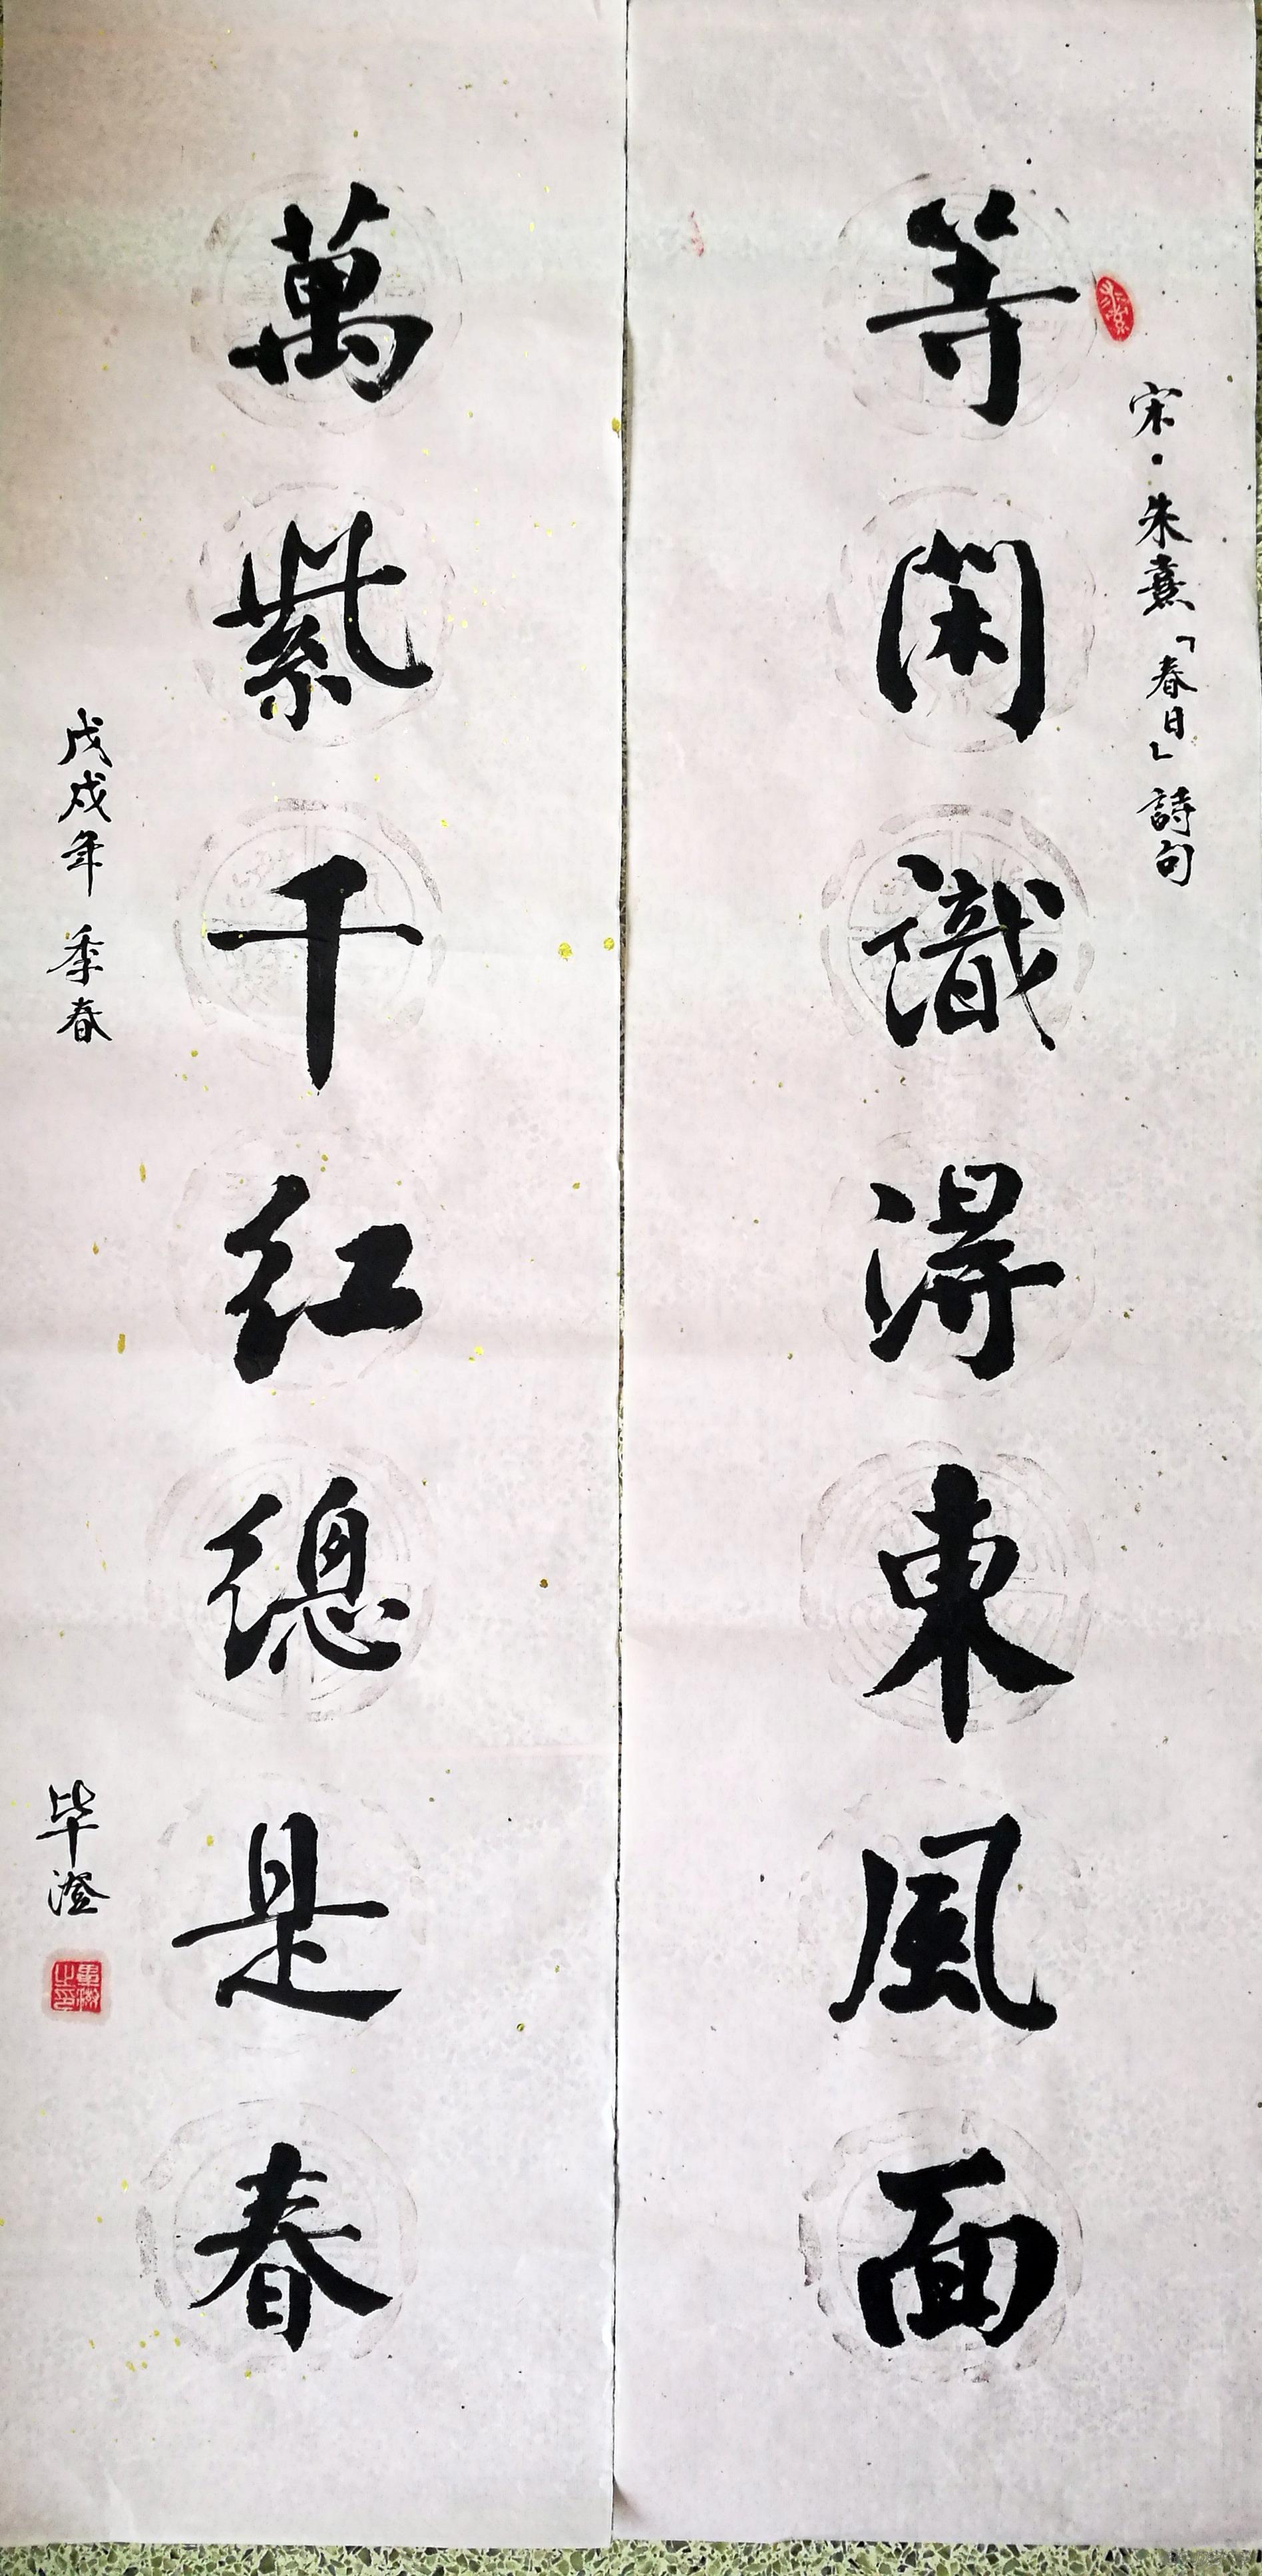 宋·朱熹「春日」詩句
等閑識得東風面
萬紫千红總是春
戊戌年 季春
毕澄